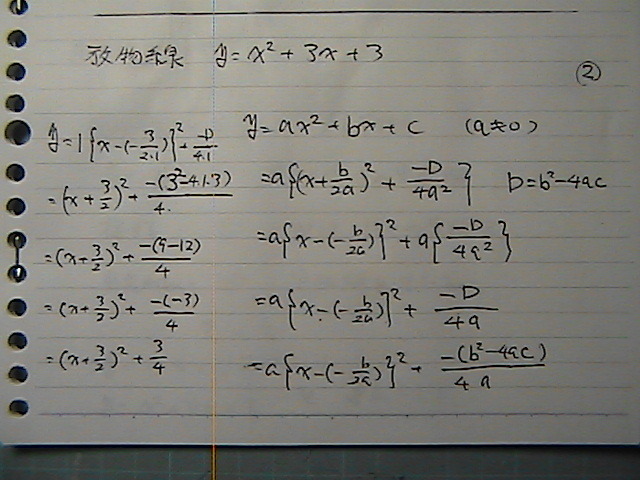 放物線 y=x²+3x+3
②
y=1{x-(-3/2·1)}²+-D/4·1
=(x+3/2)²+-(3²-4·1·3)/4·
=(x+3/2)²+-(9-12)/4
=(x+3/2)²+-(-3)/4
=(x+3/2)²+3/4
y=ax²+bx+c (a≠0)
=a{(x+b/2a)²+-D/4a²} D=b²-4ac
=a{x-(-b/2a)}²+a{-D/4a²}
=a{x-(-b/2a)}²+-D/4a
=a{x-(-b/2a)}²+-(b²-4ac)/4a